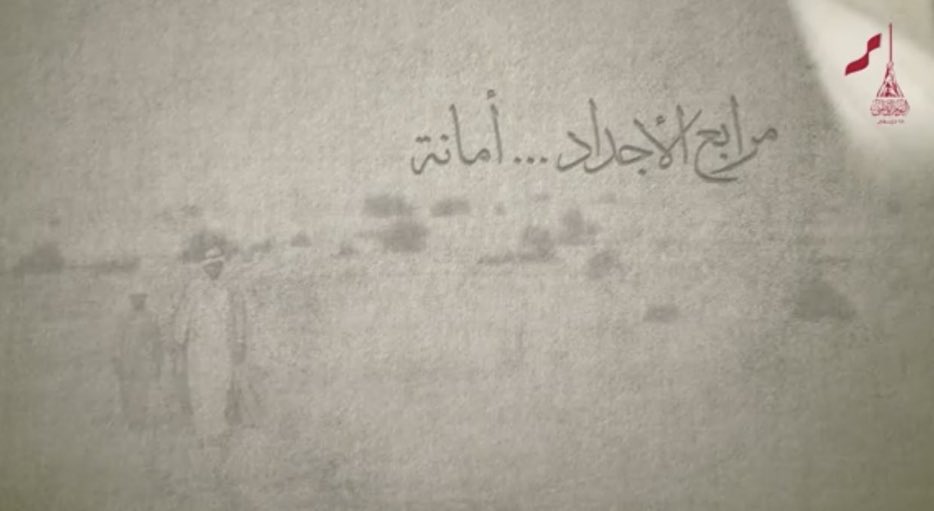 مرابع الأجداد... أمانة